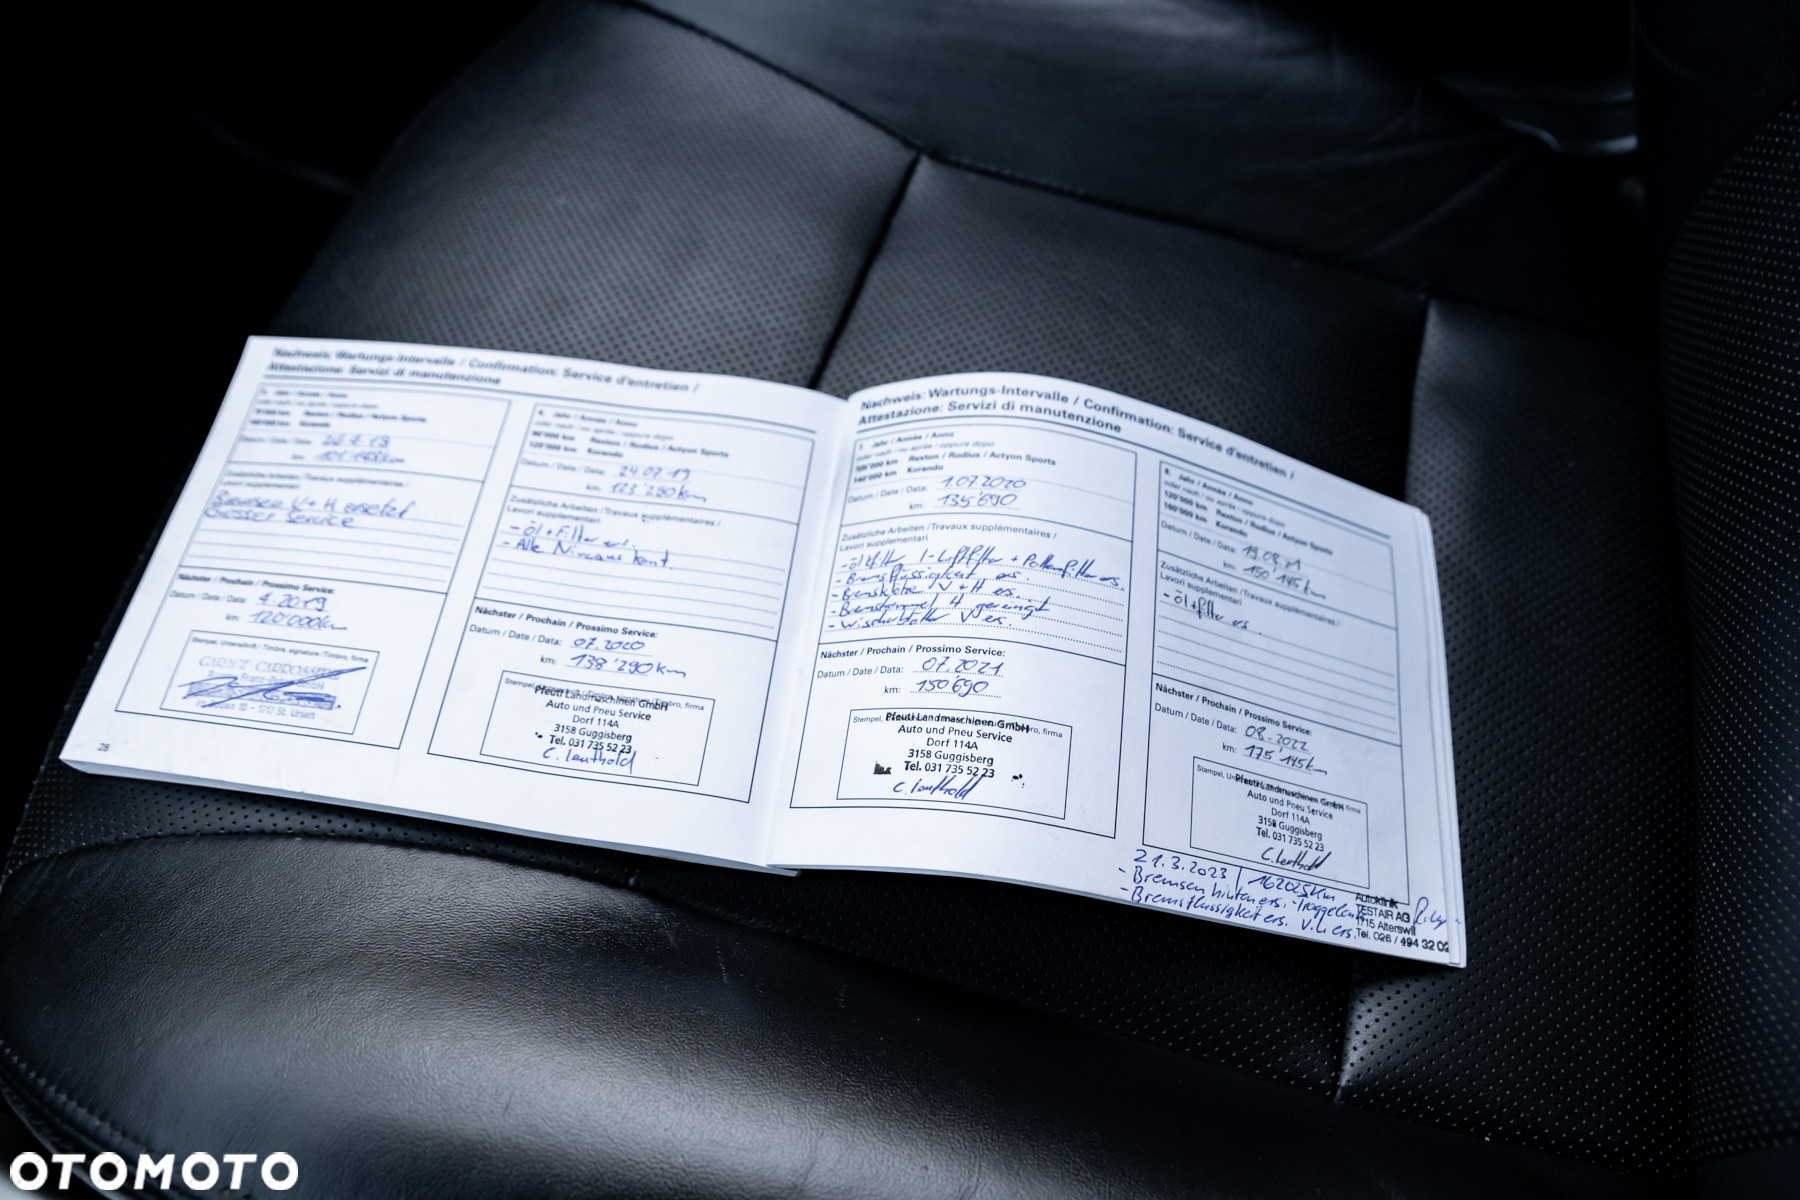 Nachweis: Wartungs-Intervalle / Confirmation: Service d'entretien /
Attestazione: Servizi di manutenzione
Jahr / Année / Anno
oder nach / ou après / oppure dopo
Rexton / Rodius / Actyon Sports
Korando
Datum / Date / Data:
km: 101'148km
Zusätzliche Arbeiten / Travaux supplémentaires /
Lavori supplementari
Bremsen V + H ersetzt
Grosser Service
Nächster / Prochain / Prossimo Service:
Datum / Date / Data: 4.2019
km: 120'000km
Stempel, Unterschrift / Timbre, signature / Timbro, firma
GARAGE CARROSSERIE
10 - 1717 St. Ursen
28
6. Jahr / Année / Anno
oder nach / ou après / oppure dopo
90'000 km Rexton / Rodius / Actyon Sports
120'000 km Korando
Datum / Date / Data: 24.07.19
km: 123'290km
Zusätzliche Arbeiten / Travaux supplémentaires /
Lavori supplementari
- Öl + Filter ers.
- Alle Niveaus kont.
Nächster / Prochain / Prossimo Service:
Datum / Date / Data: 07.2020
km: 138'290km
Pfeuti Landmaschinen GmbH
Auto und Pneu Service
Dorf 114A
3158 Guggisberg
Tel. 031 735 52 23
C. Leuthold
Nachweis: Wartungs-Intervalle / Confirmation: Service d'entretien /
Attestazione: Servizi di manutenzione
7. Jahr / Année / Anno
oder nach / ou après / oppure dopo
105'000 km Rexton / Rodius / Actyon Sports
140'000 km Korando
Datum / Date / Data: 1.07.2020
km: 135'690
Zusätzliche Arbeiten / Travaux supplémentaires /
Lavori supplementari
- Öl + filter / - Luftfilter + Pollenfilter ers.
- Bremsflüssigkeit ers.
- Bremsklötze V + H ers.
- Bremstrommel H gereinigt
- Wischerblätter V ers.
Nächster / Prochain / Prossimo Service:
Datum / Date / Data: 07.2021
km: 150'690
Pfeuti Landmaschinen GmbH
Auto und Pneu Service
Dorf 114A
3158 Guggisberg
Tel. 031 735 52 23
C. Leuthold
8. Jahr / Année / Anno
oder nach / ou après / oppure dopo
120'000 km Rexton / Rodius / Actyon Sports
160'000 km Korando
Datum / Date / Data: 19.08.21
km: 150'145km
Zusätzliche Arbeiten / Travaux supplémentaires /
Lavori supplementari
- Öl + filter ers.
Nächster / Prochain / Prossimo Service:
Datum / Date / Data: 08.2022
km: 175'145km
Pfeuti Landmaschinen GmbH
Auto und Pneu Service
Dorf 114A
3158 Guggisberg
Tel. 031 735 52 23
C. Leuthold
21.3.2023 / 162025km
- Bremsen hinten ers. - Traggelenk
- Bremsflüssigkeit ers. V.li ers.
Autoklinik
TESTAIR AG
1715 Alterswil
Tel. 026 / 494 32 02
OTOMOTO